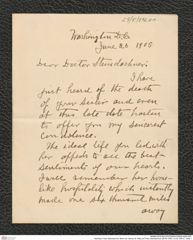 Washington D.C.
June 26 1905
Dear Doctor Steindachner:
I have
just heard of the death
of your sister and even
at this late date hasten
to offer you my sincerest
condolence.
The ideal life you led with
her appeals to all the best
sentiments of our hearts.
I well remember her home-
like hospitality which instantly
made one six thousand miles
away